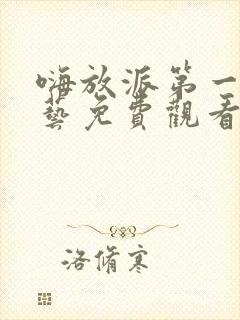 嗨放派第一
藝免費觀看
洛脩寒